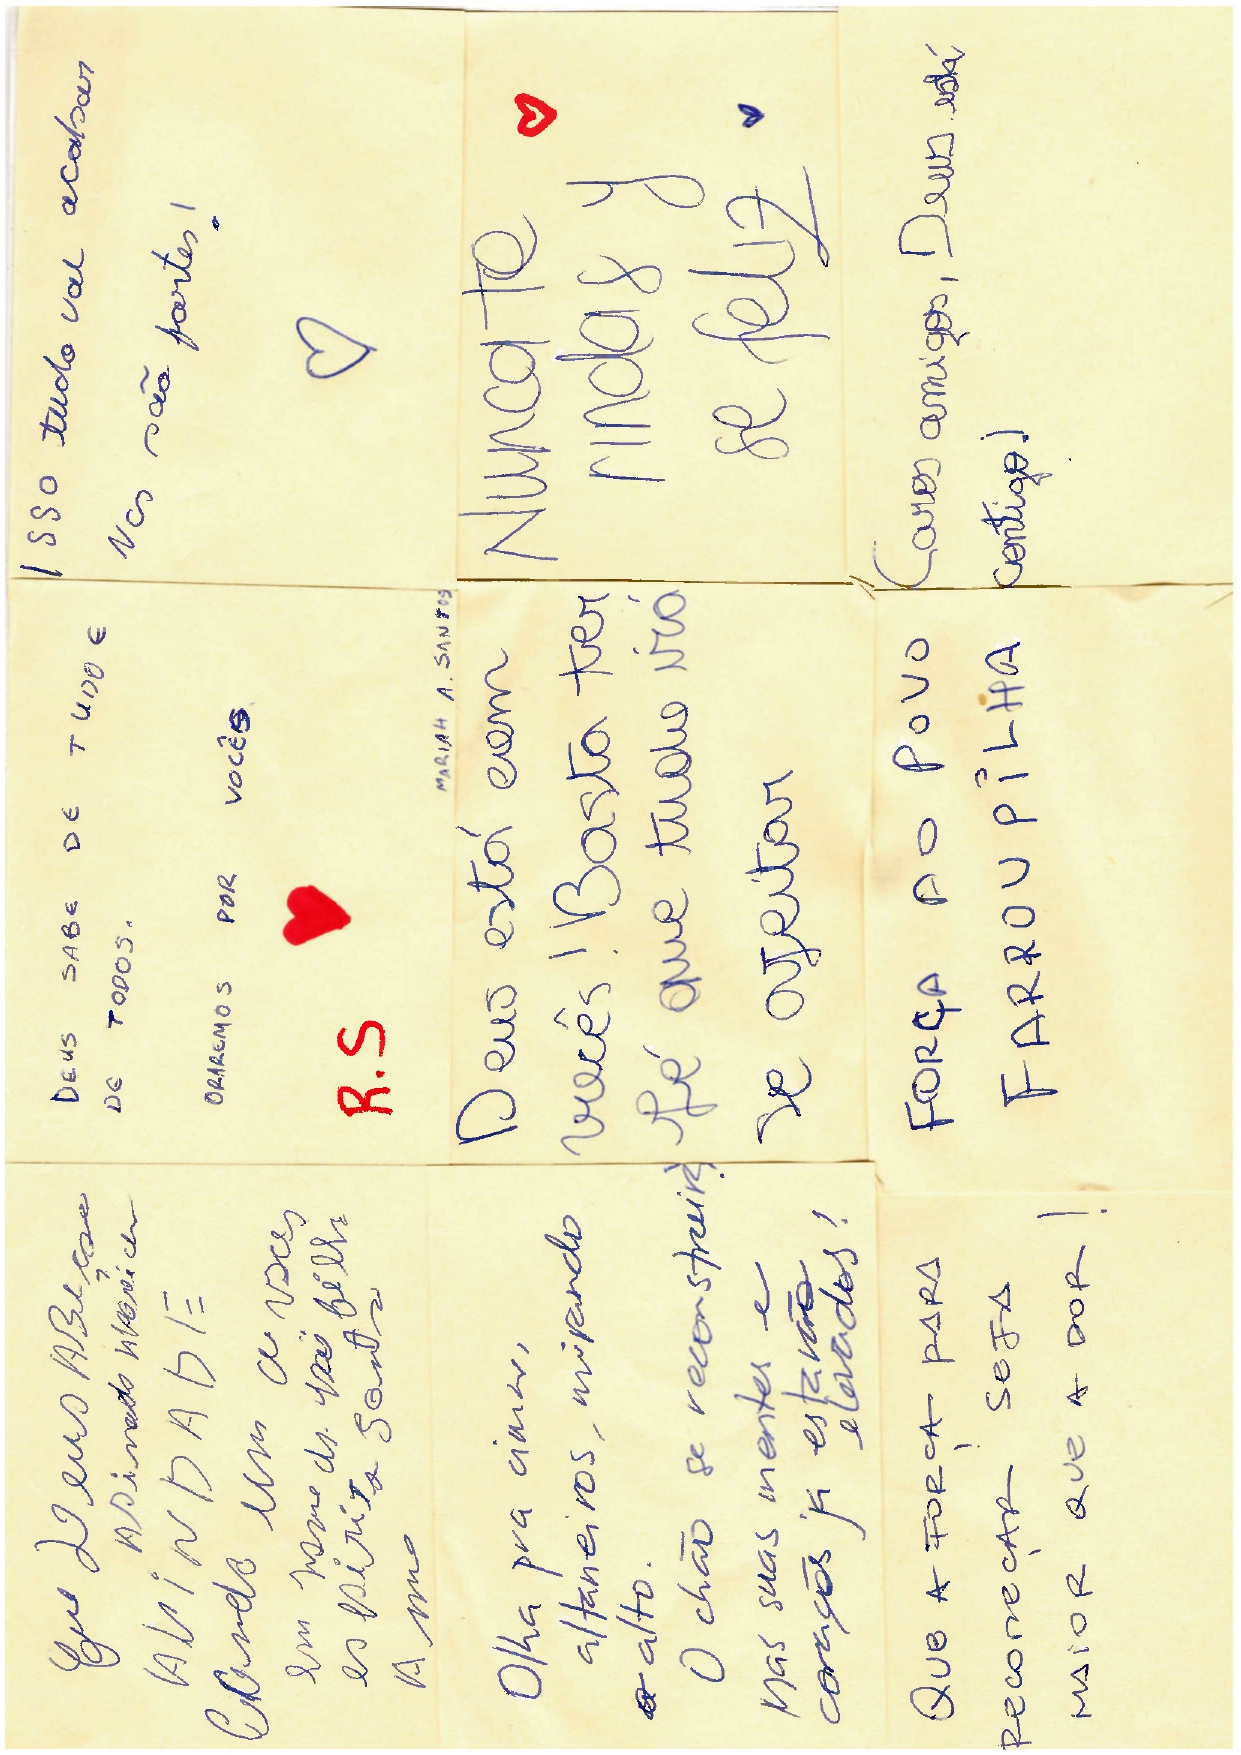 Que Deus
em nome do pai
espirito Santo
DEUS SABE DE TUDO E
DE TODOS.
ORAREMOS POR VOCÊS
R.S
MARIAH A. SANTOS
Isso tudo vai acabar
Vcs são fortes!
Olha pra cima,
altaneiros, mirando
alto.
O chão se reconstruirá,
mas suas mentes e
corações já estarão
elevados!
Deus está com
vocês! Basta ter
fé que tudo irá
se ajeitar
Nunca te
rindas y
se feliz
QUE A FORÇA PARA
RECOMEÇAR SEJA
MAIOR QUE A DOR!
FORÇA AO POVO
FARROUPILHA
Caros amigos, Deus está
contigo!